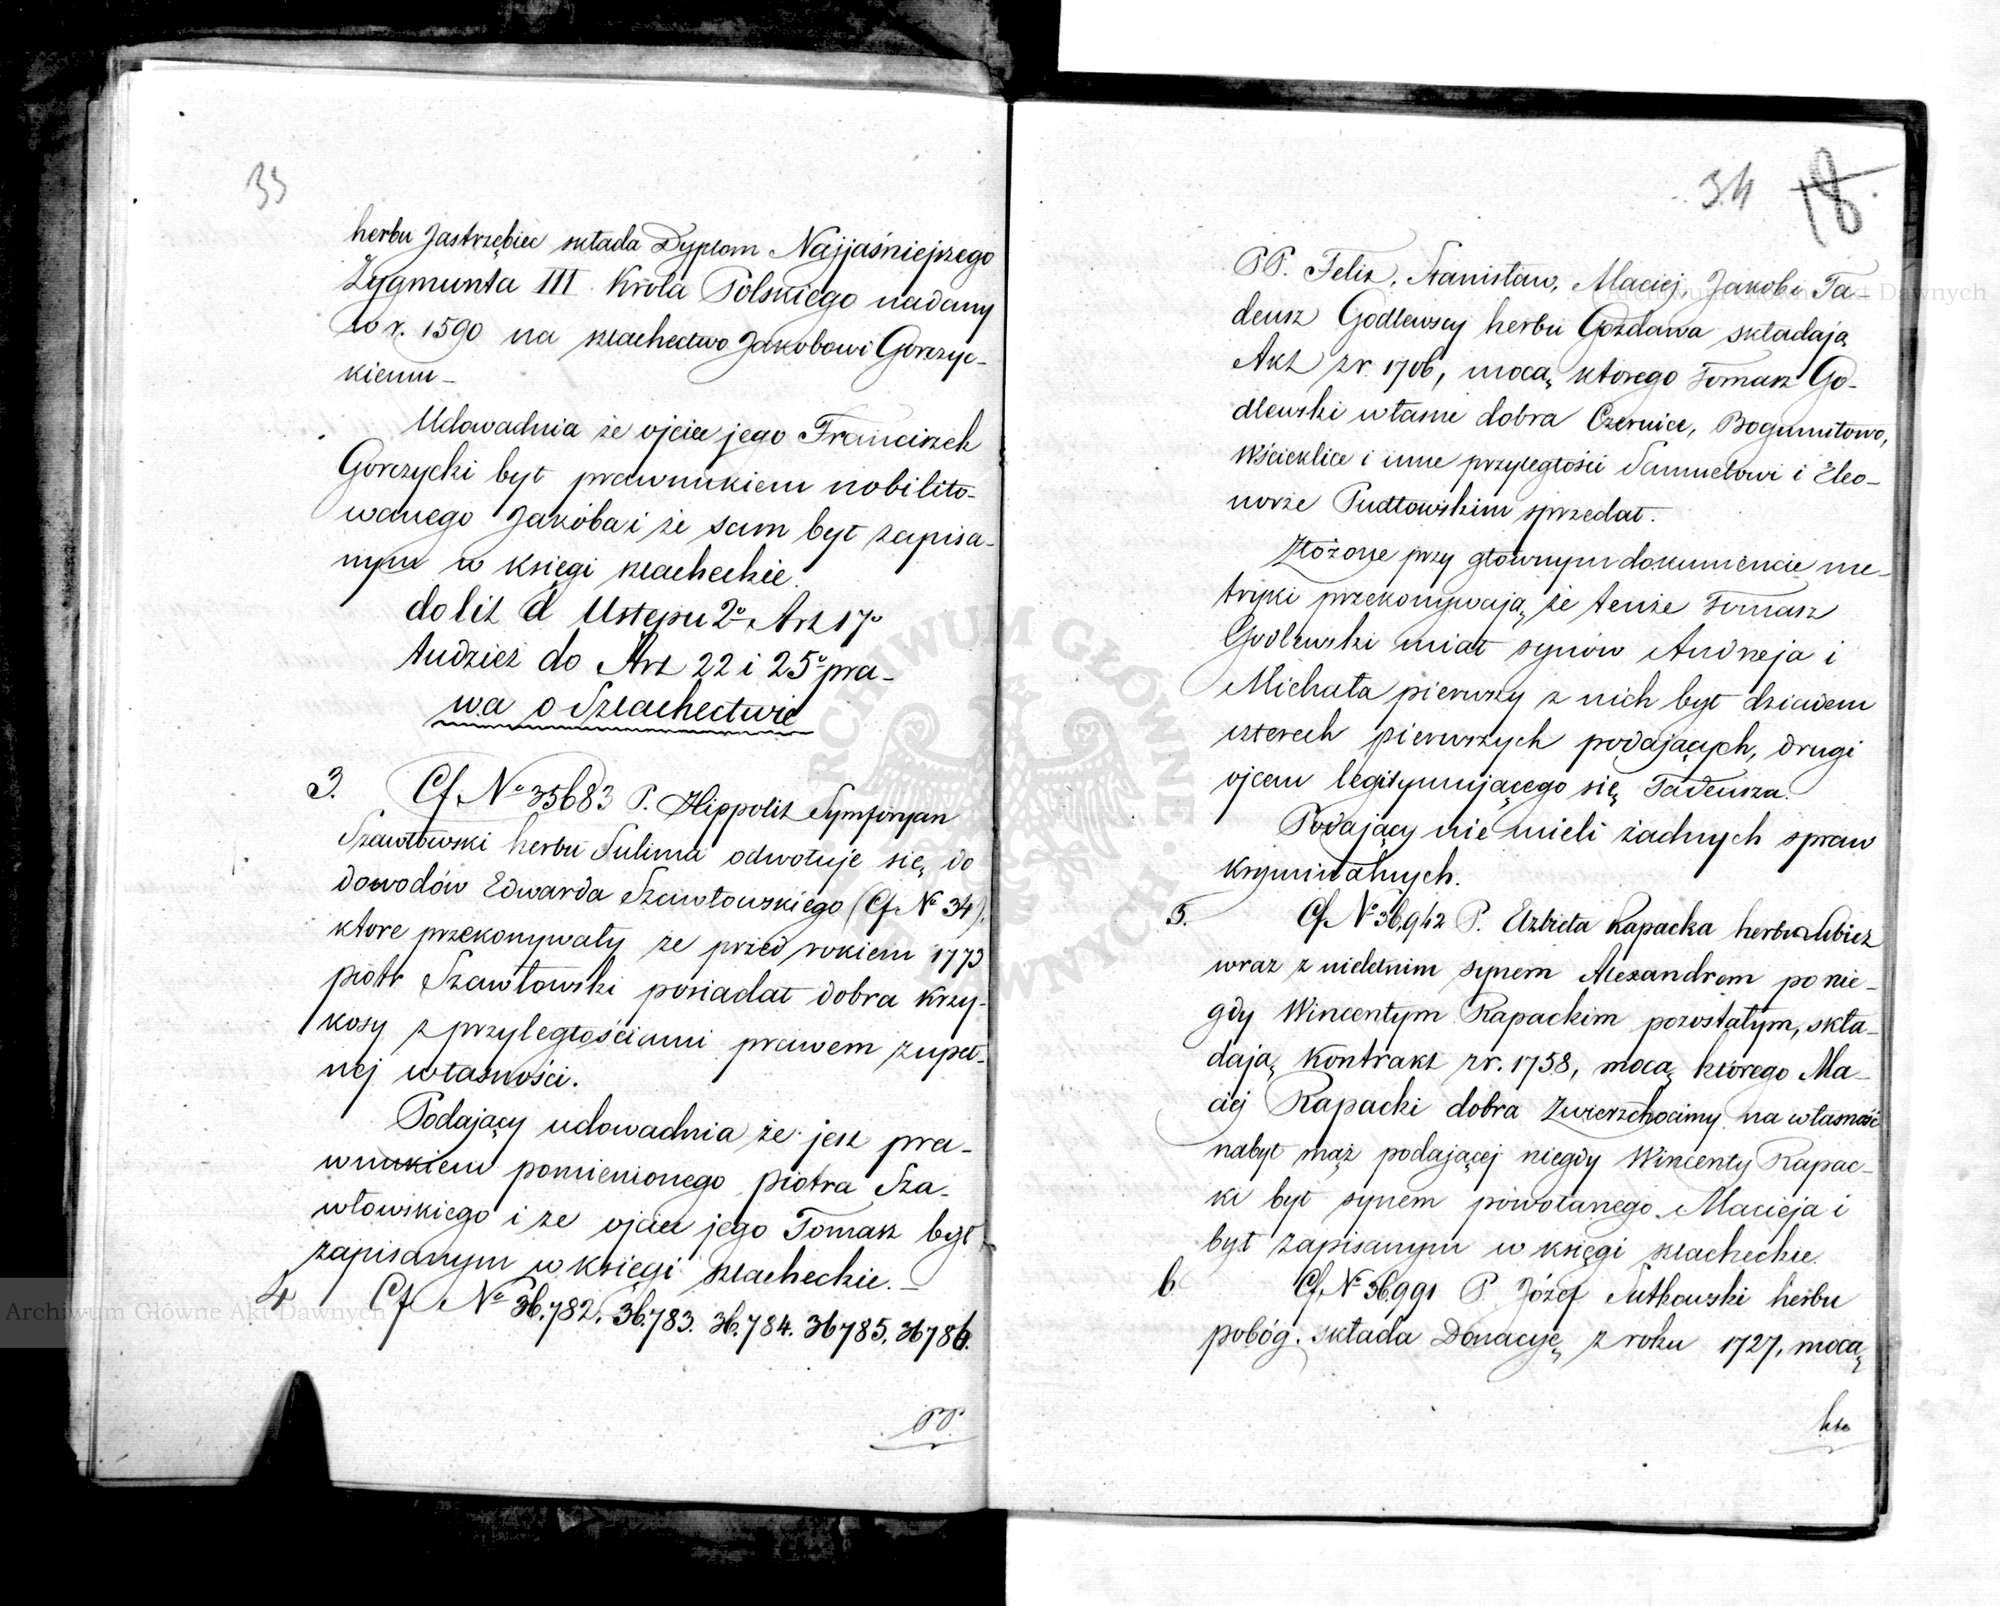 33
herbu Jastrzębiec składa Dyplom Najjaśniejszego
Zygmunta III Króla Polskiego nadany
w r. 1590 na szlachectwo Jakóbowi Gorczyc-
kiemu –
Udowadnia że ojciec jego Franciszek
Gorczycki był prawnukiem nobilito-
wanego Jakóba i że sam był zapisa-
nym w księgi szlacheckie.
do lit d Ustępu 2º Art 17º
tudzież do Art 22 i 25º pra-
wa o Szlachectwie
3. Cf. Nº 35683 P. Hippolit Symforyan
Szawłowski herbu Sulima odwołuje się do
dowodów Edwarda Szawłowskiego (Cf. Nº 34),
które przekonywały że przed rokiem 1773
piotr Szawłowski posiadał dobra Krzy-
kosy z przyległościami prawem zupeł-
nej własności.
Podający udowadnia że jest pra-
wnukiem pomienionego piotra Sza-
włowskiego i że ojciec jego Tomasz był
zapisanym w księgi szlacheckie. –
4 Cf Nº 36.782, 36.783. 36.784. 36785, 36786.
PP.
34 18.
PP. Felix, Stanisław, Maciej, Jakób i Ta-
deusz Godlewscy herbu Gozdawa składają
Akt z r. 1706, mocą którego Tomasz Go-
dlewski własne dobra Czernice, Bogumiłowo,
Wścieklice i inne przyległości Samuelowi i Eleo-
norze Pudłowskim sprzedał.
Złożone przy głównym dokumencie me-
tryki przekonywają że tenże Tomasz
Godlewski miał synów Andrzeja i
Michała pierwszy z nich był dziadem
czterech pierwszych podających, drugi
ojcem legitymującego się Tadeusza.
Podający nie mieli żadnych spraw
kryminalnych.
5. Cf. Nº 36,942 P. Elżbieta Rapacka herbu Ubisz
wraz z nieletnim synem Alexandrem po nie-
gdy Wincentym Rapackim pozostałym, skła-
dają Kontrakt z r. 1758, mocą którego Ma-
ciej Rapacki dobra Zwierzchocimy na własność
nabył mąż podającej niegdy Wincenty Rapac-
ki był synem powołanego Macieja i
był zapisanym w księgi szlacheckie.
6 Cf. Nº 36.991 P. Józef Sutkowski herbu
pobóg. składa Donacyję z roku 1727, mocą
któ
Archiwum Główne Akt Dawnych
Archiwum Główne Akt Dawnych
ARCHIWUM GŁÓWNE AKT DAWNYCH